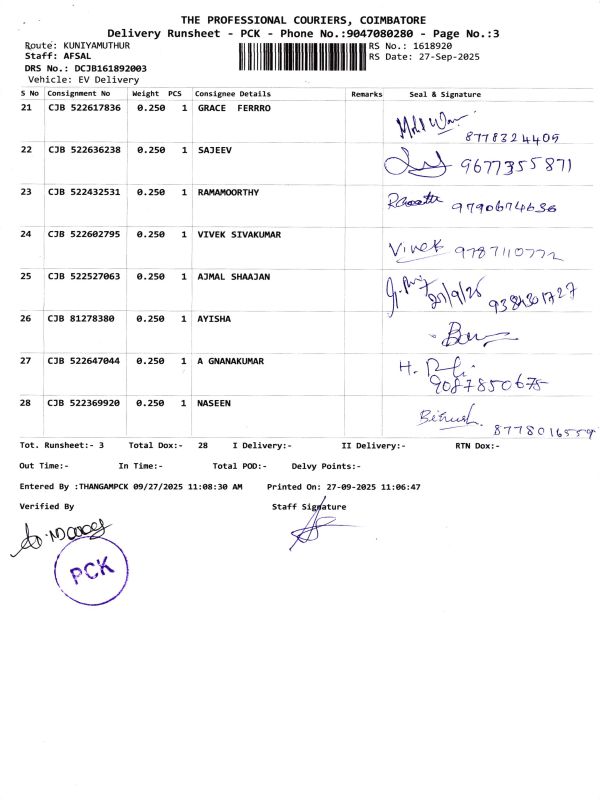 THE PROFESSIONAL COURIERS, COIMBATORE
Delivery Runsheet - PCK - Phone No.:9047080280 - Page No.:3
Route: KUNIYAMUTHUR RS No.: 1618920
Staff: AFSAL RS Date: 27-Sep-2025
DRS No.: DCJB161892003
Vehicle: EV Delivery
S No Consignment No Weight PCS Consignee Details Remarks Seal & Signature
21 CJB 522617836 0.250 1 GRACE FERRRO
8778324409
22 CJB 522636238 0.250 1 SAJEEV 9677355871
23 CJB 522432531 0.250 1 RAMAMOORTHY
9790674636
24 CJB 522602795 0.250 1 VIVEK SIVAKUMAR
Vivek 9787110772
25 CJB 522527063 0.250 1 AJMAL SHAAJAN
26 CJB 81278380 0.250 1 AYISHA
27 CJB 522647044 0.250 1 A GNANAKUMAR
9087850675
28 CJB 522369920 0.250 1 NASEEN
8778016559
Tot. Runsheet:- 3 Total Dox:- 28 I Delivery:- II Delivery:- RTN Dox:-
Out Time:- In Time:- Total POD:- Delvy Points:-
Entered By :THANGAMPCK 09/27/2025 11:08:30 AM Printed On: 27-09-2025 11:06:47
Verified By Staff Signature
PCK